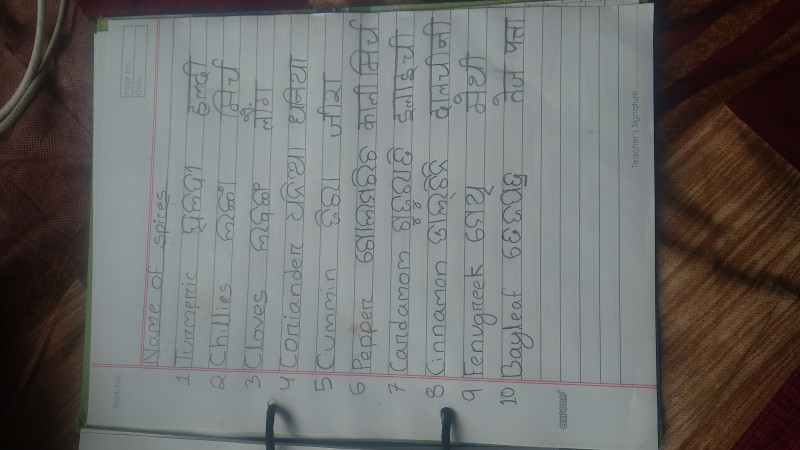 Expt. No.
Page No.
Date
Name of spices
1 Turmeric ହଳଦୀ हल्दी
2 Chillies ଲଙ୍କା मिर्च
3 Cloves ଲବଙ୍ଗ लौंग
4 Coriander ଧନିଆ धनिया
5 Cummin ଜିରା जीरा
6 Pepper ଗୋଲମରିଚ काली मिर्च
7 Cardamom इलाइची
8 Cinnamon ଡାଲଚିନି दालचीनी
9 Fenugreek ମେଥି मेथी
10 Bayleaf ତେଜପତ୍ର तेज पत्ता
Teacher's Signature